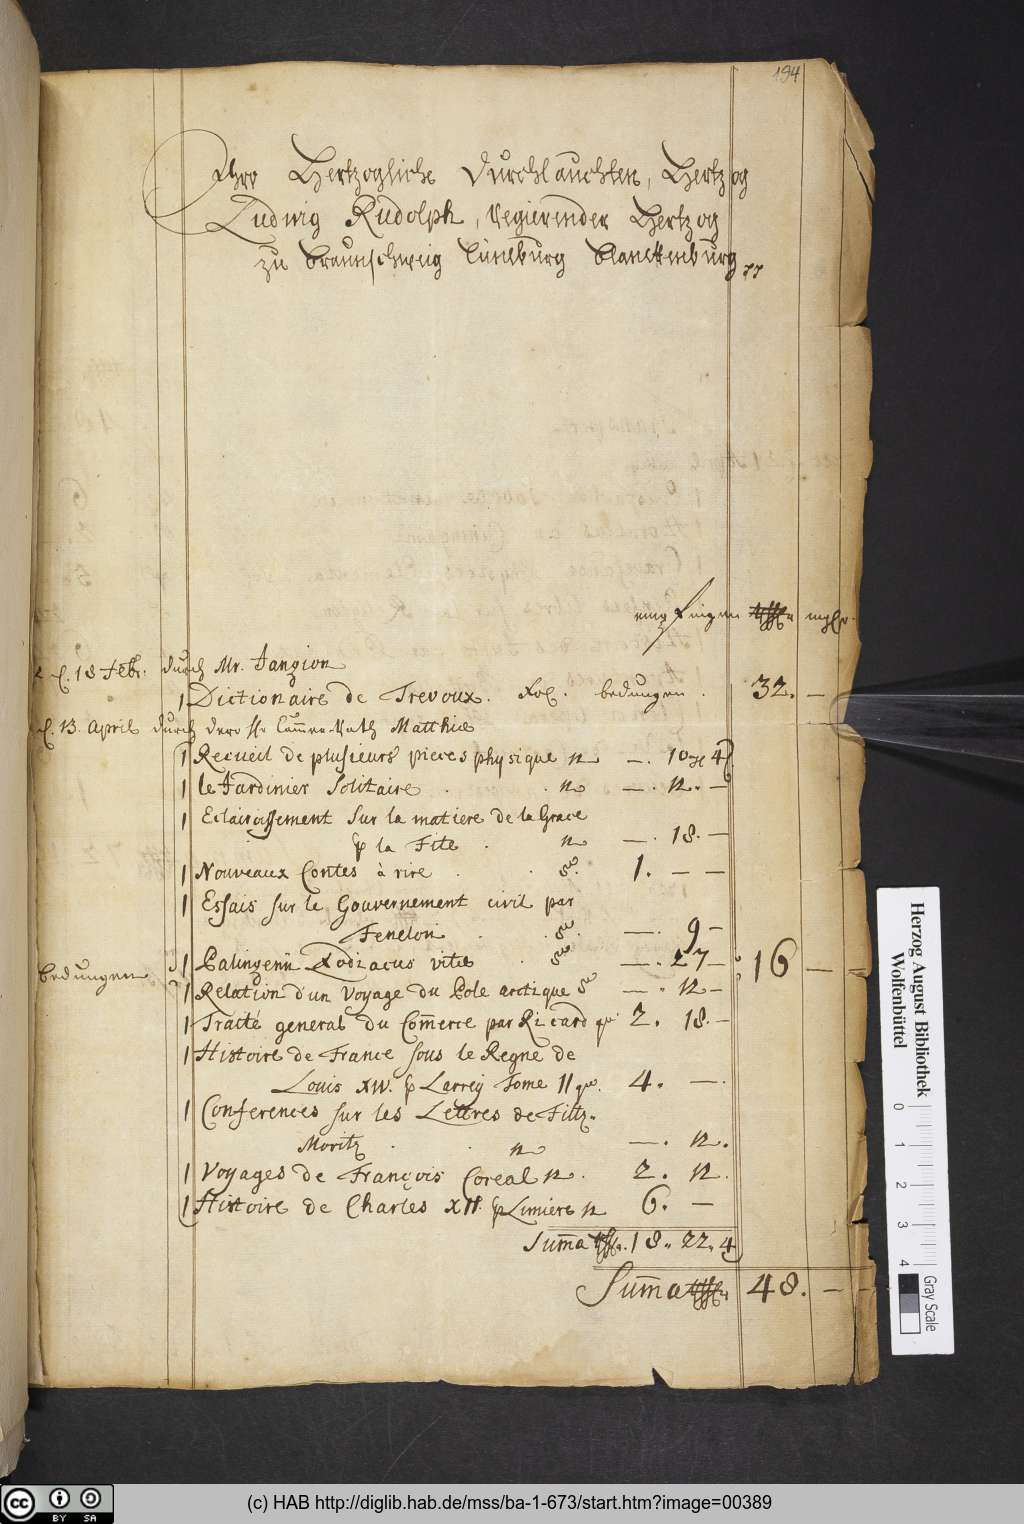 194
Ihro Hertzogliche Durchlauchten, Hertzog
Ludwig Rudolph, Regierender Hertzog
zu Braunschweig Lüneburg Blanckenburg
empfingen
d. 18 Febr. durch Mr. Janzion
1 Dictionaire de Trevoux. Fol. bedungen. 32. —
d. 13. April durch dero Cammer-Rath Matthiæ
1 Recueil de plusieurs pieces physique 12 — . 10 4
1 le Jardinier Solitaire . . 12 — . 12. —
1 Eclaircissement sur la matiere de la Grace
p la Fite . 12 — . 18. —
1 Nouveaux Contes à rire . . 8 1. — —
1 Essais sur le Gouvernement civil par
Fenelon . . 8. — . 9 —
bedungen 1 Palingenii Zodiacus vitæ . 8 — . 27 — 16 —
1 Relation d'un Voyage du Pole arctique 8 — . 12 —
1 Traité general du Com̄erce par Ricard 2. 18. —
1 Histoire de France sous le Regne de
Louis XIV. p Larrey Tome II 4. — .
1 Conferences sur les Lettres de Filtz.
Moritz . . 12 — . 12.
1 Voyages de François Coreal 12. 2. 12.
1 Histoire de Charles XII. p Limiers 12 6. —
Sum̄a 18. 22. 4
Sum̄a 48. — —
Herzog August Bibliothek
Wolfenbüttel
0 1 2 3 4
Gray Scale
cc BY SA
(c) HAB http://diglib.hab.de/mss/ba-1-673/start.htm?image=00389